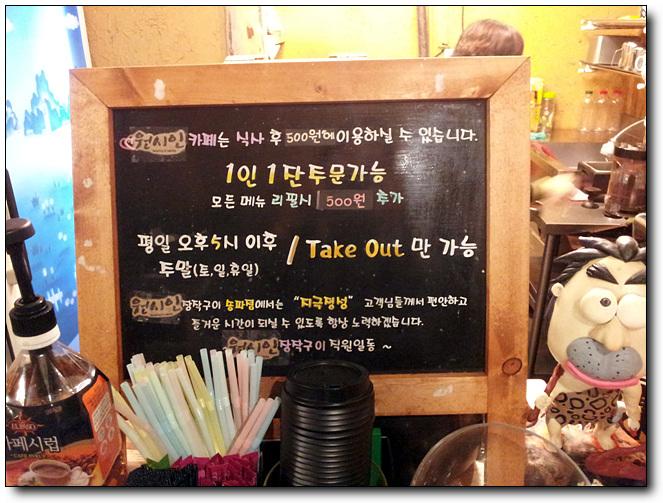 원시인 카페는 식사 후 500원에 이용하실 수 있습니다.
1인 1잔 주문가능
모든 메뉴 리필시 500원 추가
평일 오후5시 이후
주말(토,일,휴일)
/ Take Out 만 가능
원시인 장작구이 송파점에서는 "지극정성" 고객님들께서 편안하고
즐거운 시간이 되실 수 있도록 항상 노력하겠습니다.
원시인 장작구이 직원일동 ~
카페시럽